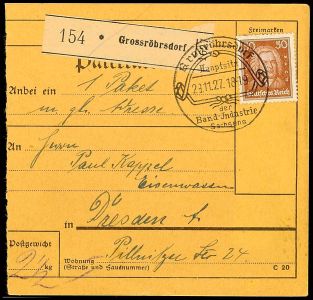 154 • Grossröhrsdorf
Freimarken
Grossröhrsdorf
Hauptsitz
29.11.27. 18-19
der
Band-Industrie
Sachsens
50
Deutsches Reich
Anbei ein
1 Paket
m. gl. Adresse
An
Herrn
Paul Kappel
Eisenwaren
in
Dresden A
Pillnitzer Str 24.
Postgewicht
2½
kg
Wohnung
(Straße und Hausnummer)
C 20